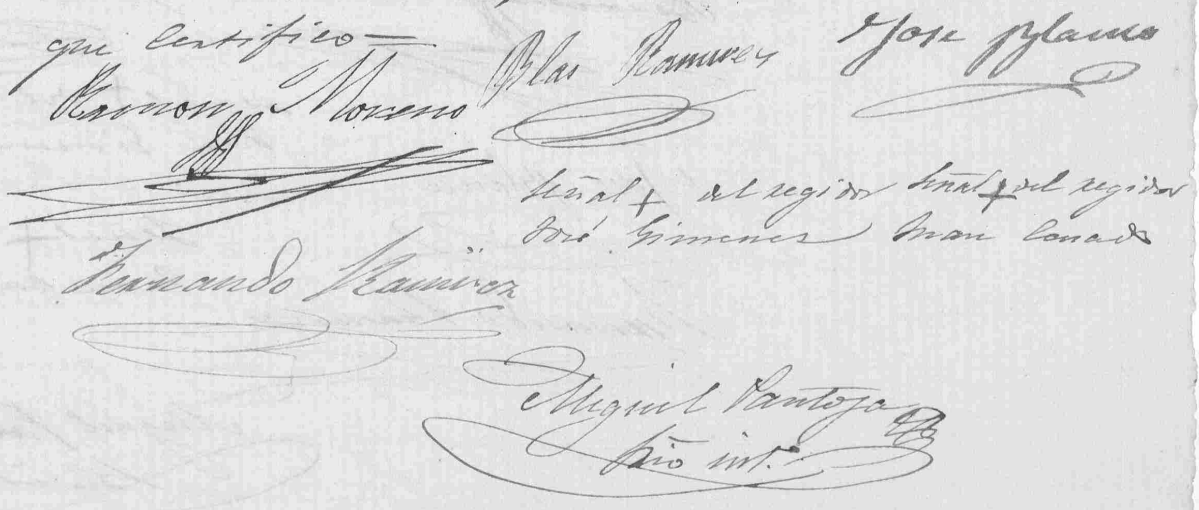 que Certifico =
Ramon Moreno
Blas Ramires
Jose Blanco
Señal + del regidor
José Gimenes
Señal + del regidor
Juan
Fernando Ramirez
Miguel Pantoja
Srio int.º